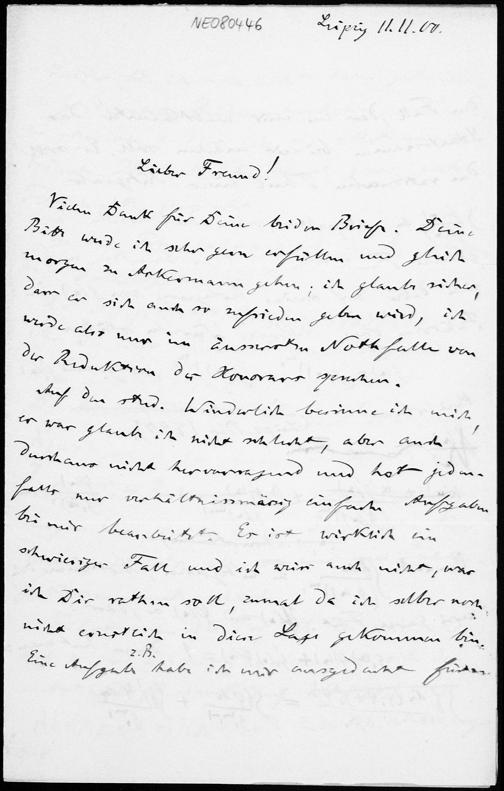 NE080446
Leipzig 11.11.00.
Lieber Freund!
Vielen Dank für Deine beiden Briefe. Deine
Bitte werde ich sehr gern erfüllen und gleich
morgen zu Ackermann gehen; ich glaube sicher,
dass er sich auch so zufrieden geben wird, ich
werde also nur im äussersten Nothfalle von
der Reduktion des Honorars sprechen.
Auf den stud. Winderlich besinne ich mich,
er war glaube ich nicht schlecht, aber auch
durchaus nicht hervorragend und hat jeden-
falls nur verhältnissmässig einfache Aufgaben
bei mir bearbeitet. Es ist wirklich ein
schwieriger Fall und ich weiss auch nicht, was
ich Dir rathen soll, zumal da ich selber noch
nicht ernstlich in diese Lage gekommen bin.
Eine Aufgabe z.B. habe ich mir ausgedacht